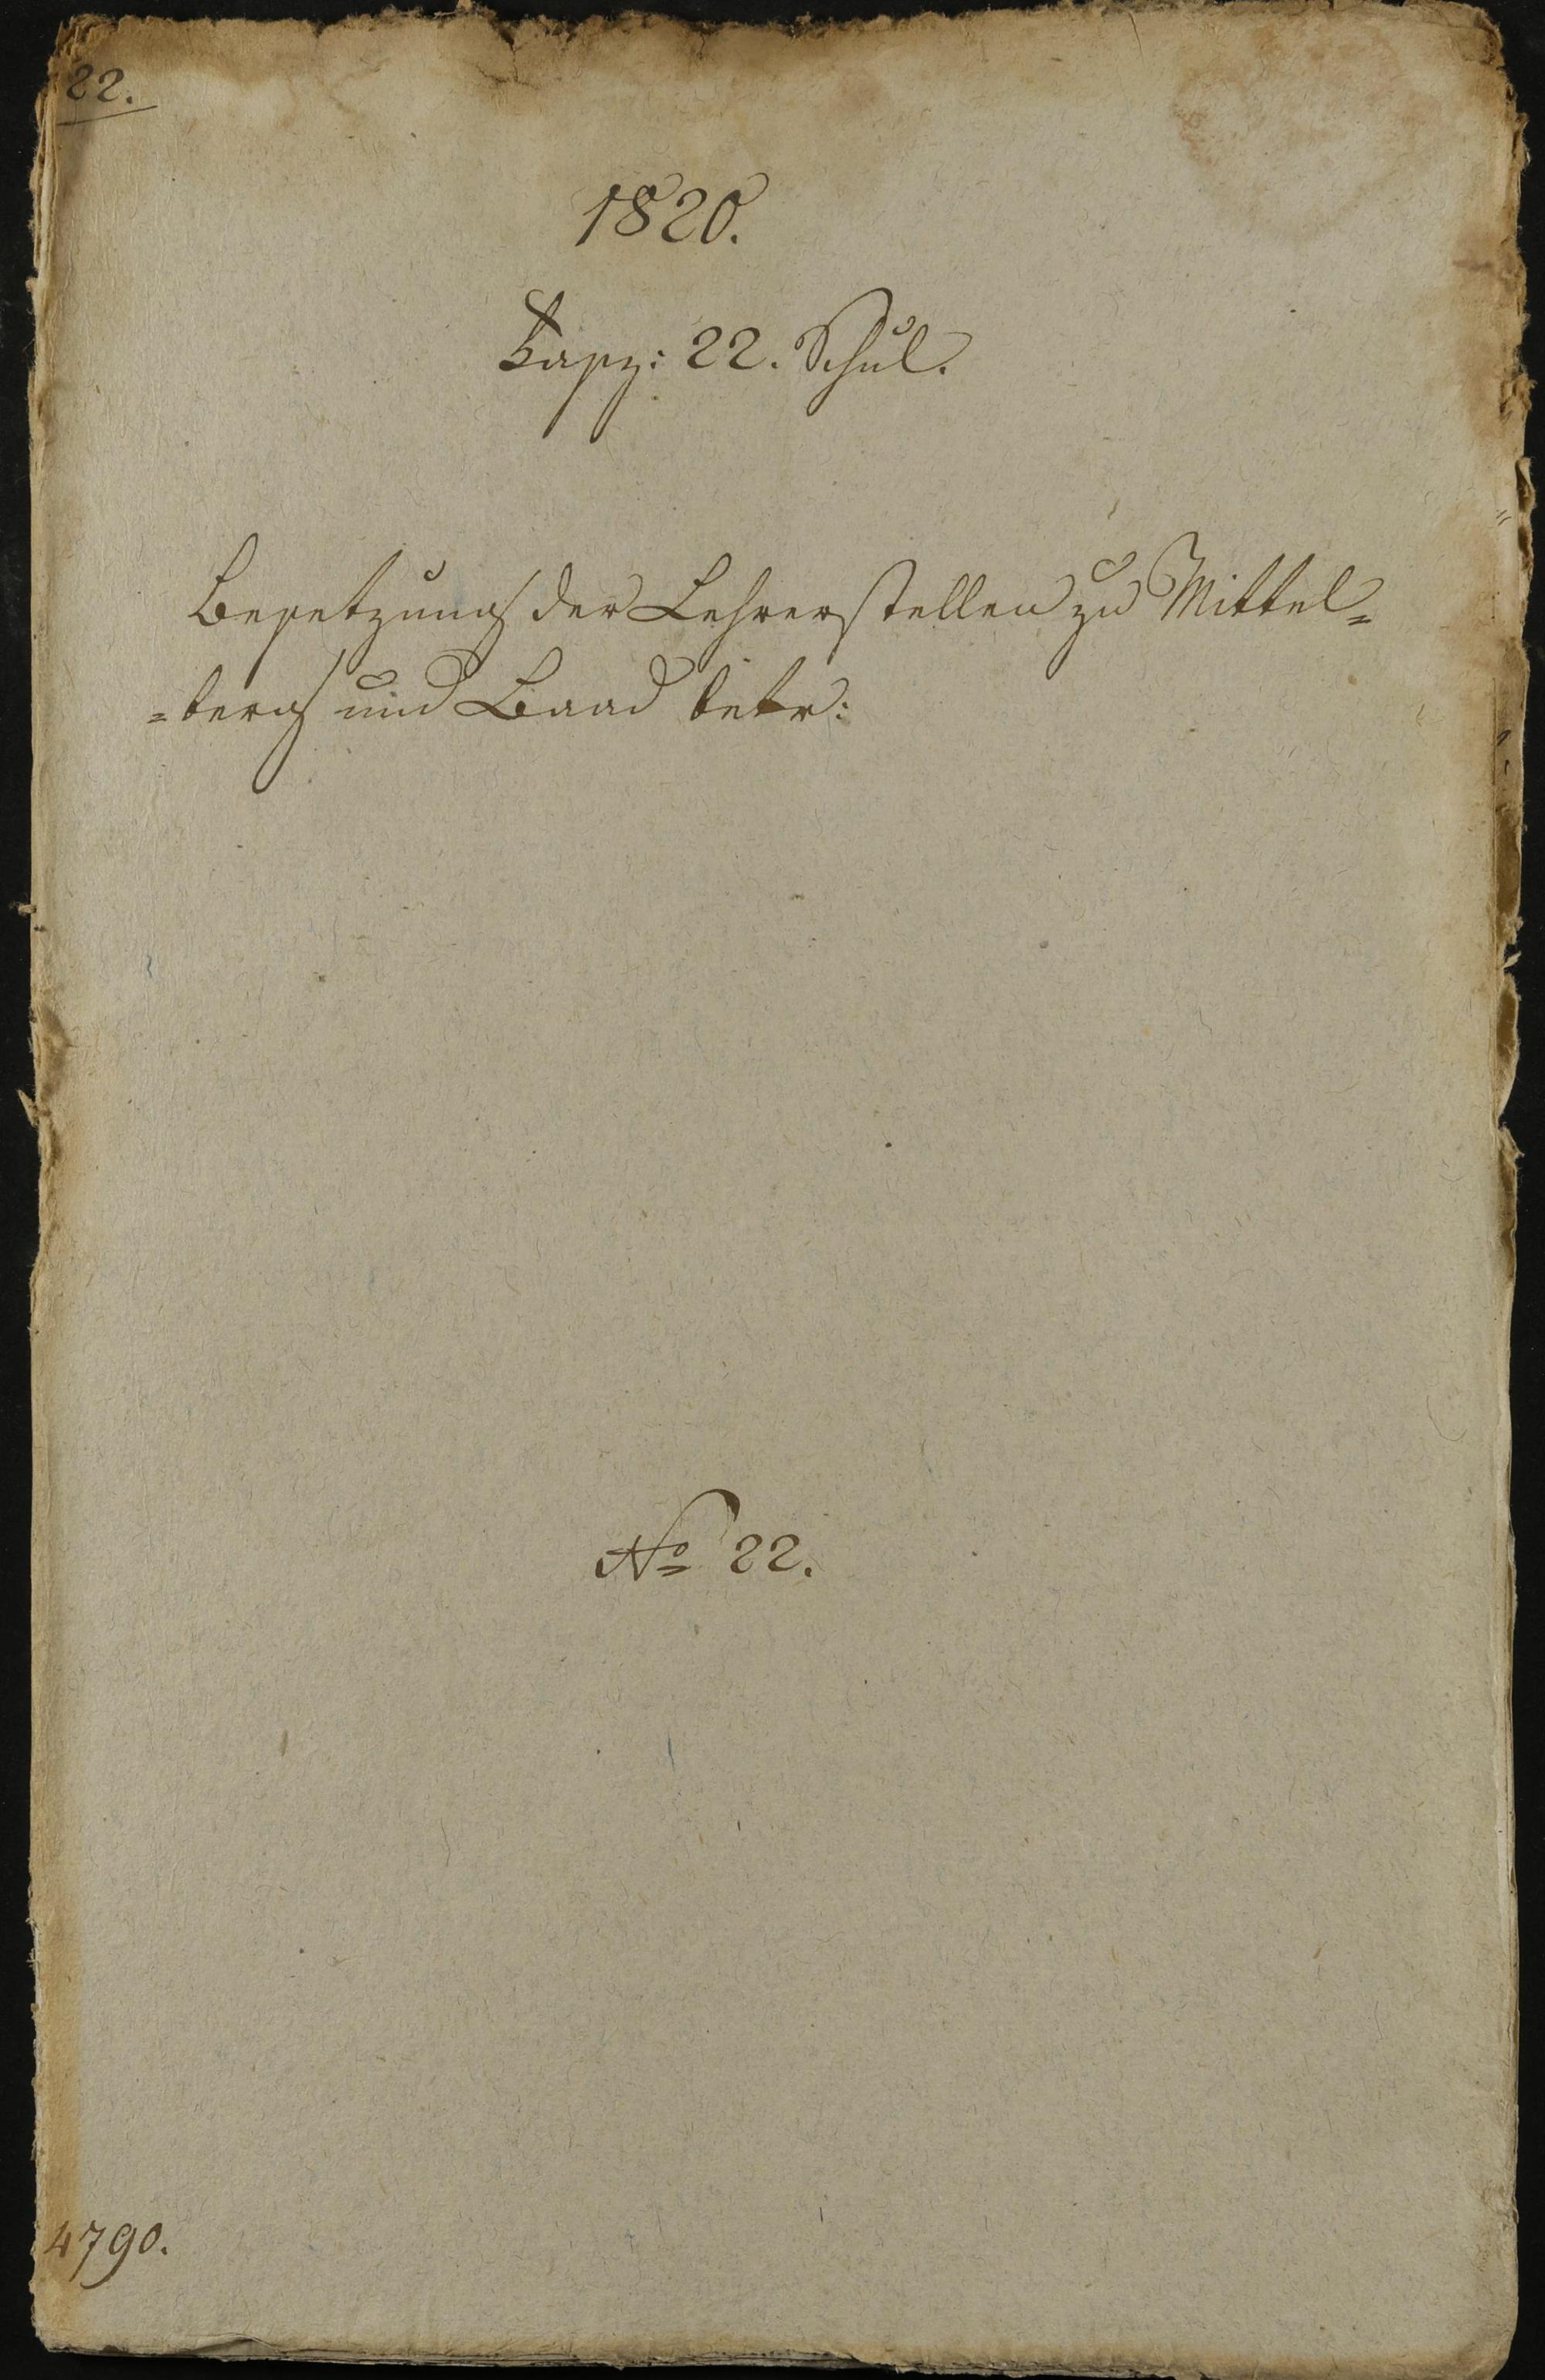 22.
1820.
Fasz: 22. Schul.
Besetzung der Lehrerstellen zu Mittel=
=berg und Baad betr:
No 22.
4790.